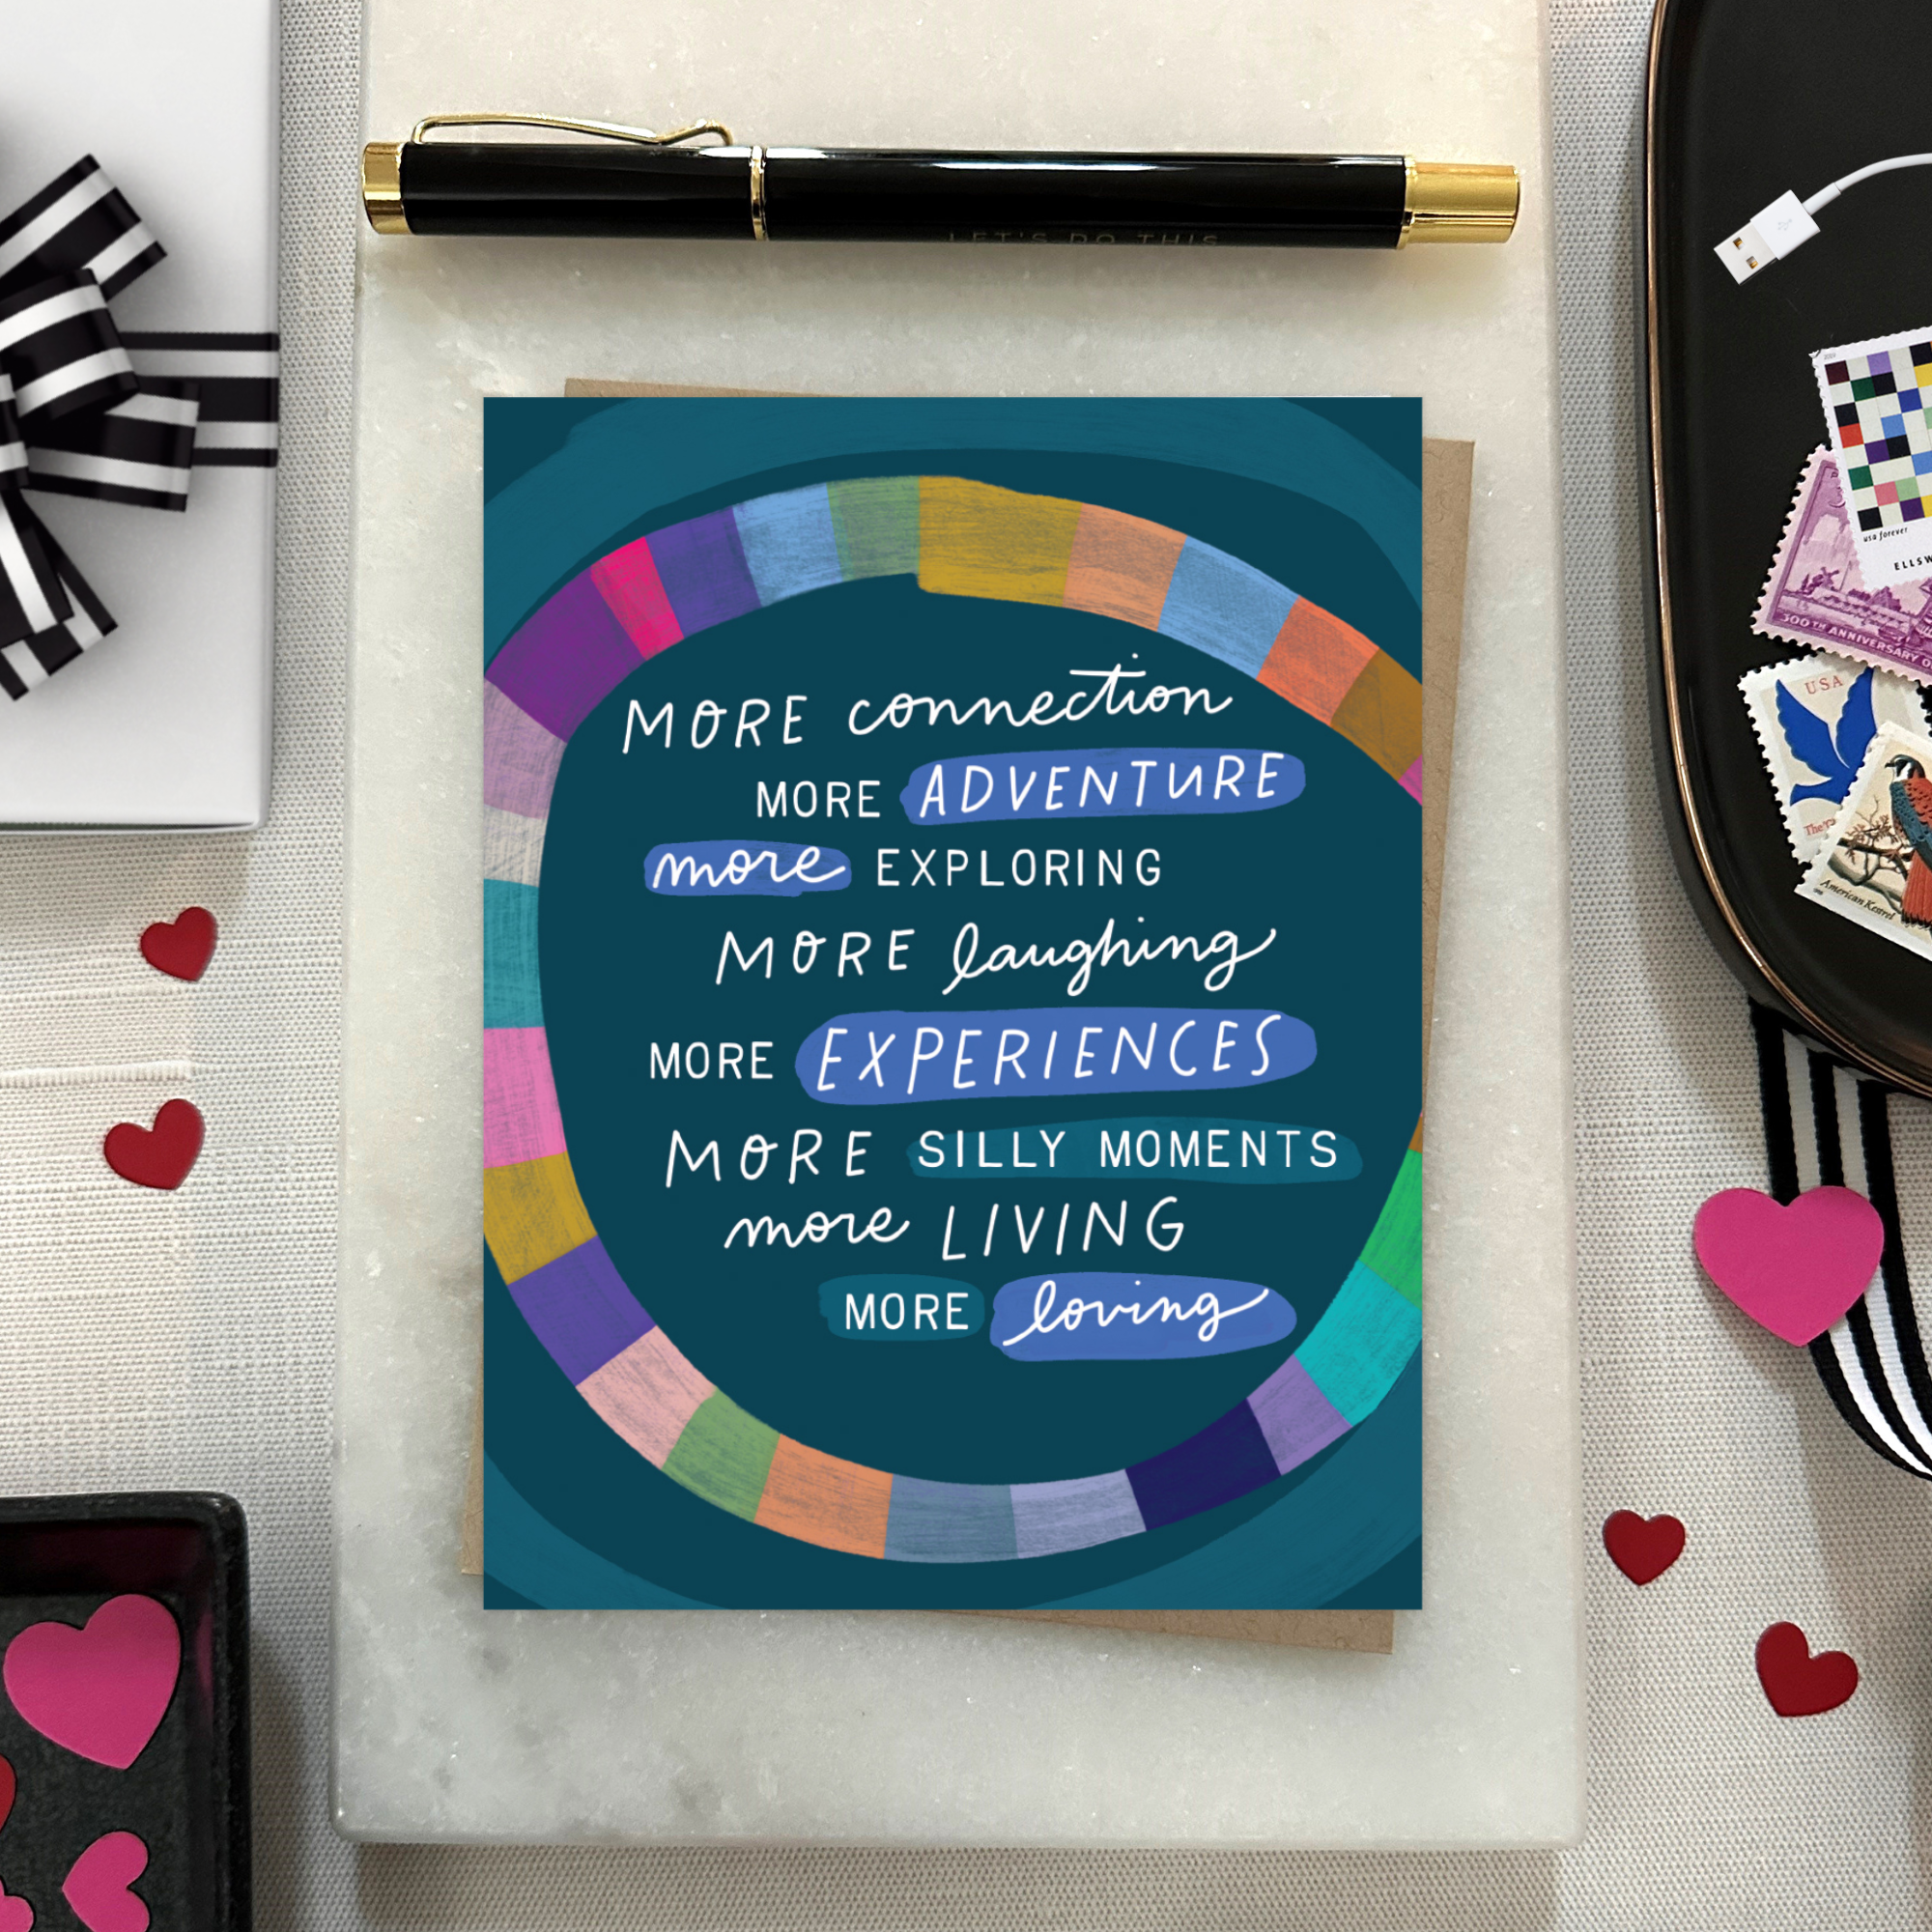 LET'S DO THIS
MORE connection
MORE ADVENTURE
more EXPLORING
MORE laughing
MORE EXPERIENCES
MORE SILLY MOMENTS
more LIVING
MORE loving
usa forever
300TH ANNIVERSARY
USA
American Kestrel